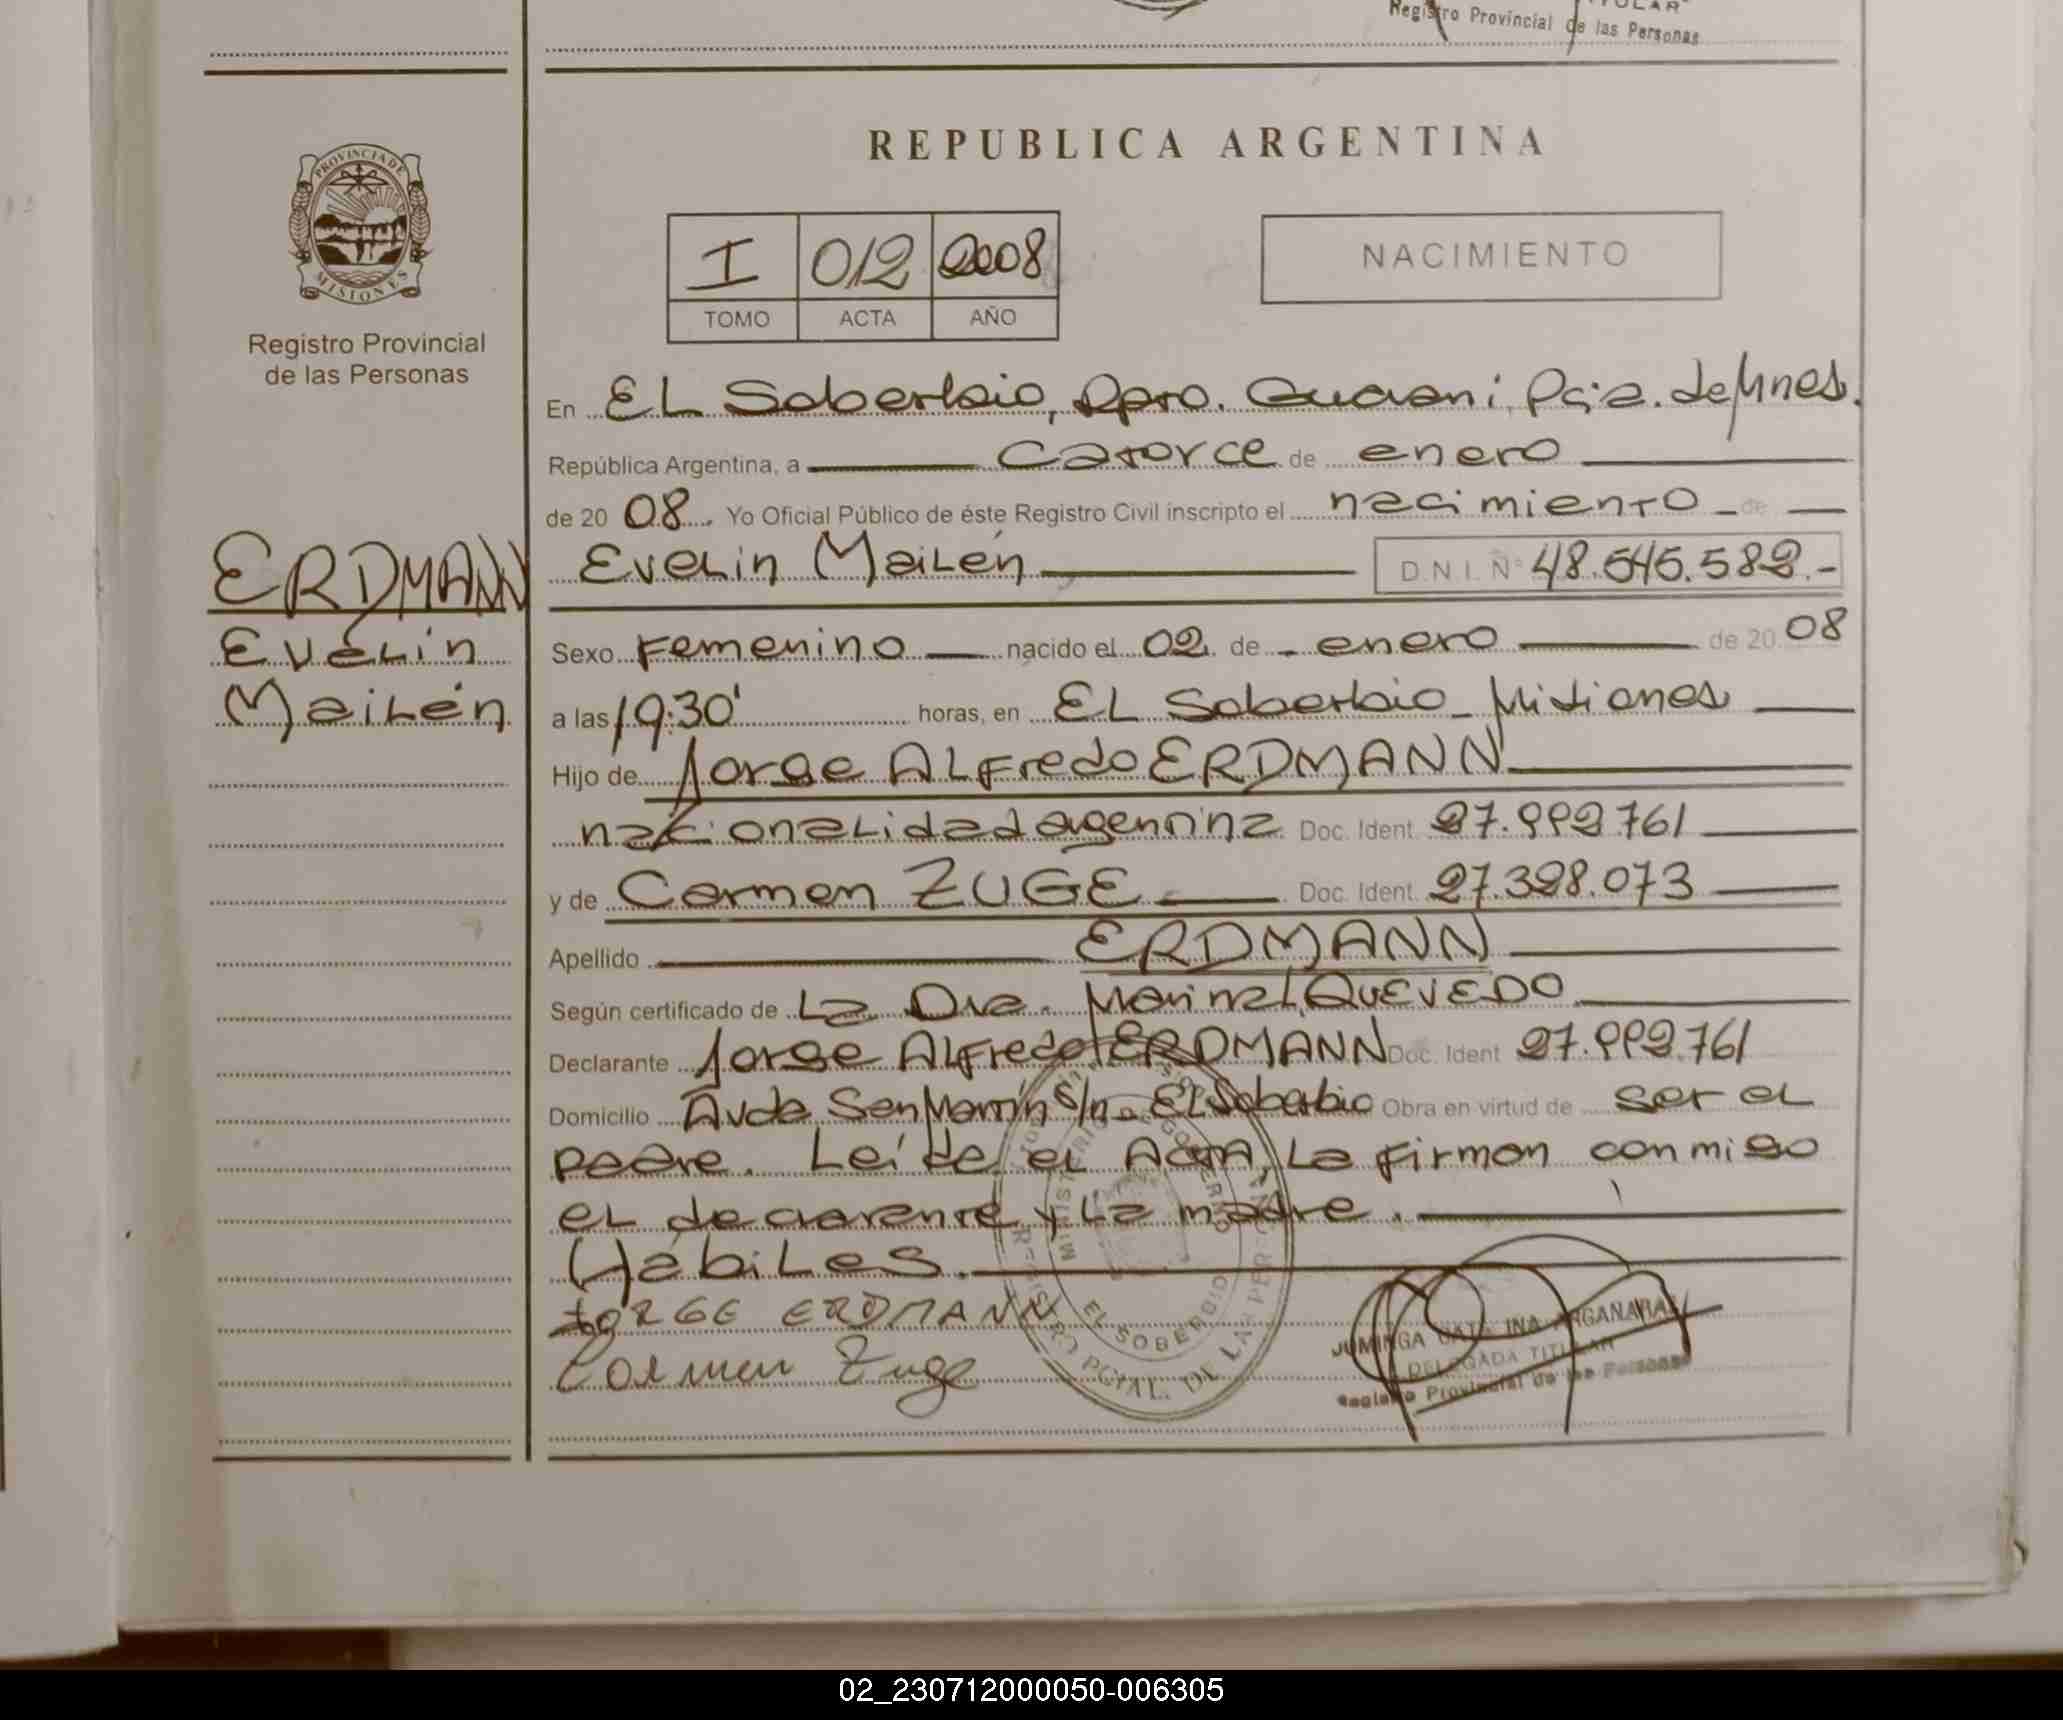 TITULAR
Registro Provincial de las Personas
PROVINCIA DE
MISIONES
Registro Provincial
de las Personas
ERDMANN
Evelin
Mailén
REPUBLICA ARGENTINA
I 012 2008
TOMO ACTA AÑO
NACIMIENTO
En EL Soberbio, Dpto. Guaraní, Pcia. de Mnes.
República Argentina, a catorce de enero
de 20 08. Yo Oficial Público de éste Registro Civil inscripto el nacimiento de
Evelin Mailén D.N.I. Nº 48.545.582.-
Sexo Femenino nacido el 02 de enero de 20 08
a las 19:30' horas, en EL Soberbio - Misiones
Hijo de Jorge ALFredo ERDMANN
nacionalidad argentina Doc. Ident. 27.992.761
y de Carmen ZUGE Doc. Ident. 27.328.073
Apellido ERDMANN
Según certificado de La Dra. Marina L. QUEVEDO
Declarante Jorge ALFredo ERDMANN Doc. Ident 27.992.761
Domicilio Avda San Martín s/n - EL Soberbio Obra en virtud de ser el
padre. Leída el Acta, La firman conmigo
el declarante y La madre.
Hábiles.
JORGE ERDMANN
Carmen Zuge
MINISTERIO DE GOBIERNO
EL SOBERBIO
REGISTRO PCIAL. DE LAS PERSONAS
CATALINA ARGANARAS
DELEGADA TITULAR
Registro Provincial de las Personas
02_230712000050-006305